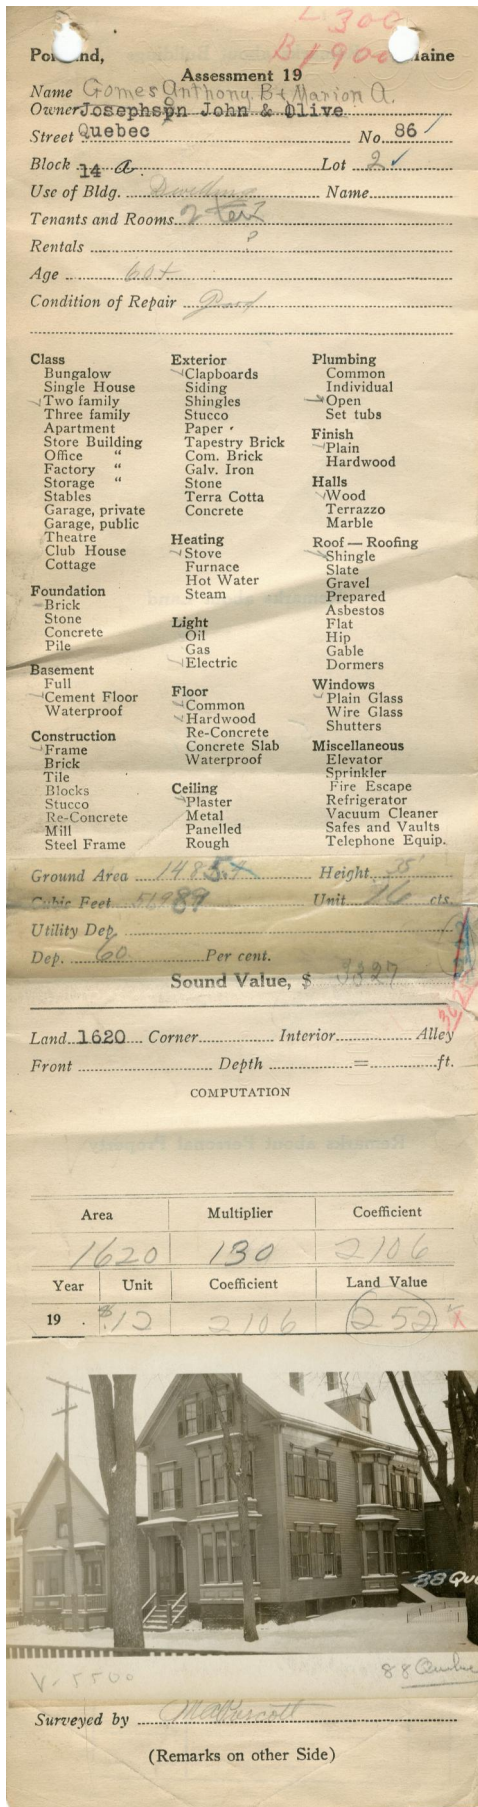 L 300
B 1900
Portland, Maine
Assessment 19
Name Gomes Anthony B & Marion A.
Owner Josephson John & Olive
Street Quebec No. 86
Block 14 a. Lot 2
Use of Bldg. Dwelling Name
Tenants and Rooms 2 ten ?
Rentals ?
Age 60+
Condition of Repair Good
Class
Bungalow
Single House
Two family
Three family
Apartment
Store Building
Office "
Factory "
Storage "
Stables
Garage, private
Garage, public
Theatre
Club House
Cottage
Foundation
Brick
Stone
Concrete
Pile
Basement
Full
Cement Floor
Waterproof
Construction
Frame
Brick
Tile
Blocks
Stucco
Re-Concrete
Mill
Steel Frame
Exterior
Clapboards
Siding
Shingles
Stucco
Paper
Tapestry Brick
Com. Brick
Galv. Iron
Stone
Terra Cotta
Concrete
Heating
Stove
Furnace
Hot Water
Steam
Light
Oil
Gas
Electric
Floor
Common
Hardwood
Re-Concrete
Concrete Slab
Waterproof
Ceiling
Plaster
Metal
Panelled
Rough
Plumbing
Common
Individual
Open
Set tubs
Finish
Plain
Hardwood
Halls
Wood
Terrazzo
Marble
Roof — Roofing
Shingle
Slate
Gravel
Prepared
Asbestos
Flat
Hip
Gable
Dormers
Windows
Plain Glass
Wire Glass
Shutters
Miscellaneous
Elevator
Sprinkler
Fire Escape
Refrigerator
Vacuum Cleaner
Safes and Vaults
Telephone Equip.
Ground Area Height
Cubic Feet Unit 16 cts.
Utility Dep.
Dep. 60 Per cent.
Sound Value, $ 3327
Land 1620 Corner Interior Alley
Front Depth = ft.
COMPUTATION
Area Multiplier Coefficient
1620 130 2106
Year Unit Coefficient Land Value
19 .12 2106 252
88 Que
V. 5500 88 Quebec
Surveyed by
(Remarks on other Side)